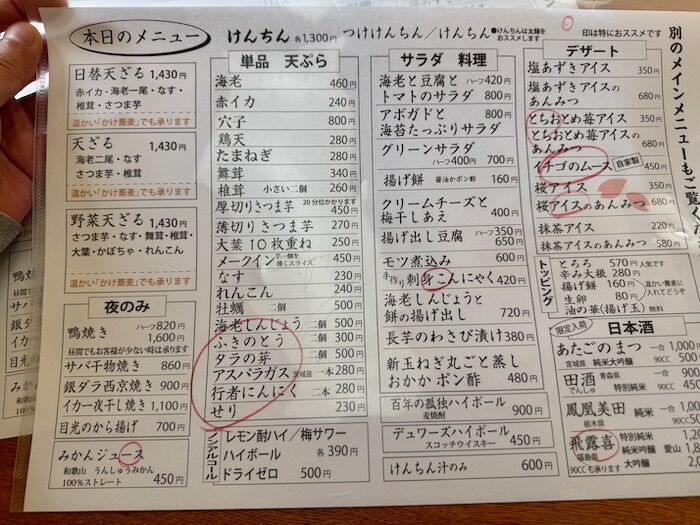 本日のメニュー
けんちん 各1,300円 つけけんちん／けんちん ●けんちんは太麺をおススメします
印は特におススメです
別のメインメニューもご覧
日替天ざる 1,430円
赤イカ・海老一尾・なす・
椎茸・さつま芋
温かい「かけ蕎麦」でも承ります
天ざる 1,430円
海老二尾・なす
さつま芋・椎茸
温かい「かけ蕎麦」でも承ります
野菜天ざる 1,430円
さつま芋・なす・舞茸・椎茸・
大葉・かぼちゃ・れんこん
温かい「かけ蕎麦」でも承ります
夜のみ
鴨焼き ハーフ820
1,600円
昼間でもお客様が少ない時は承ります
サバ干物焼き 860円
銀ダラ西京焼き 900円
イカ一夜干し焼き 1,100円
目光のから揚げ 700円
みかんジュース
和歌山 うんしゅうみかん
100%ストレート 450円
単品 天ぷら
海老 460円
赤イカ 240円
穴子 800円
鶏天 280円
たまねぎ 280円
舞茸 340円
椎茸 小さい二個 260円
厚切りさつま芋 20分位かかります 450円
薄切りさつま芋 270円
大葉10枚重ね 250円
メークイン 芋一個を薄くスライス 450円
なす 230円
れんこん 240円
牡蠣 二個 500円
海老しんじょう 二個 500円
ふきのとう 二個 300円
タラの芽 二個 500円
アスパラガス 茨城産 一本280円
行者にんにく 一本280円
せり 230円
ノンアルコール
レモン酎ハイ／梅サワー
ハイボール 各390円
ドライゼロ 500円
サラダ 料理
海老と豆腐と ハーフ420円
トマトのサラダ 800円
アボガドと 800円
海苔たっぷりサラダ
グリーンサラダ
ハーフ400円 700円
揚げ餅 醤油かポン酢 160円
クリームチーズと
梅干しあえ 400円
揚げ出し豆腐 ハーフ350
650円
モツ煮込み 600円
手作り刺身こんにゃく 420円
海老しんじょうと
餅の揚げ出し 720円
長芋のわさび漬け 380円
新玉ねぎ丸ごと蒸し
おかか ポン酢 480円
百年の孤独ハイボール
麦焼酎 900円
デュワーズハイボール
スコッチウイスキー 450円
けんちん汁のみ 600円
デザート
塩あずきアイス 350円
塩あずきアイスの
あんみつ 680円
とちおとめ苺アイス 350円
とちおとめ苺アイスの
あんみつ 680円
イチゴのムース 自家製 450円
桜アイス 350円
桜アイスのあんみつ 680円
抹茶アイス 220円
抹茶アイスのあんみつ 580円
トッピング
とろろ 570円 人気です
辛み大根 280円
揚げ餅 160円 温かい蕎麦に入れてどうぞ
生卵 80円
油の華(揚げ玉) 無料
限定入荷 日本酒
あたごのまつ 一合 1,000
宮城県 純米大吟醸 90CC 500
田酒 青森県 一合
でんしゅ 特別純米 90CC
鳳凰美田 一合
栃木県 純米
飛露喜 特別純米
福島県 純米吟醸 愛山
90CCも承ります 大吟醸